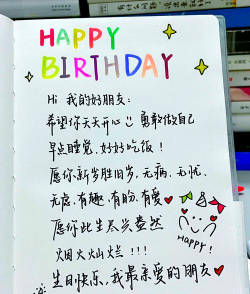 HAPPY
BIRTHDAY
Hi 我的好朋友:
希望你天天开心 勇敢做自己
早点睡觉、好好吃饭!
愿你新岁胜旧岁、无病、无忧、
无虑、有趣、有盼、有爱
愿你此生尽兴盎然
烟火灿烂!!!
Happy!
生日快乐,我最亲爱的朋友